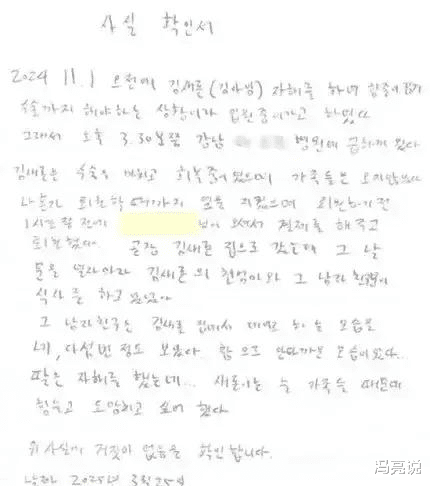 사실 확인서
2024 11.1 오전에 김새론(김아임) 자해를 하여 힘줄이 끊겨
수술까지 해야하는 상황이라 입원중이라고 하였다
그래서 오후 3.30분쯤 강남 병원에 급하게 갔다
김새론은 수술을 마치고 회복중이었으며 가족들은 오지않았다
나는 퇴원할 때까지 옆을 지켰으며 퇴원하기전
1시간쯤 전에 님이 오셔서 결제를 해주고
퇴원했다. 곧장 김새론 집으로 갔는데 그 날
문을 열자마자 김새론의 친엄마와 그 남자친구가
식사를 하고 있었다
그 남자친구는 김새론 집에서 데이트 하는 모습을
4, 다섯번 정도 보았다 참으로 안타까운 모습이었다..
딸은 자해를 했는데... 새론이는 늘 가족들 때문에
힘들고 도망치고 싶어 했다
위 사실에 거짓이 없음을 확인합니다.
날짜 2025년 3월 25일
冯亮说